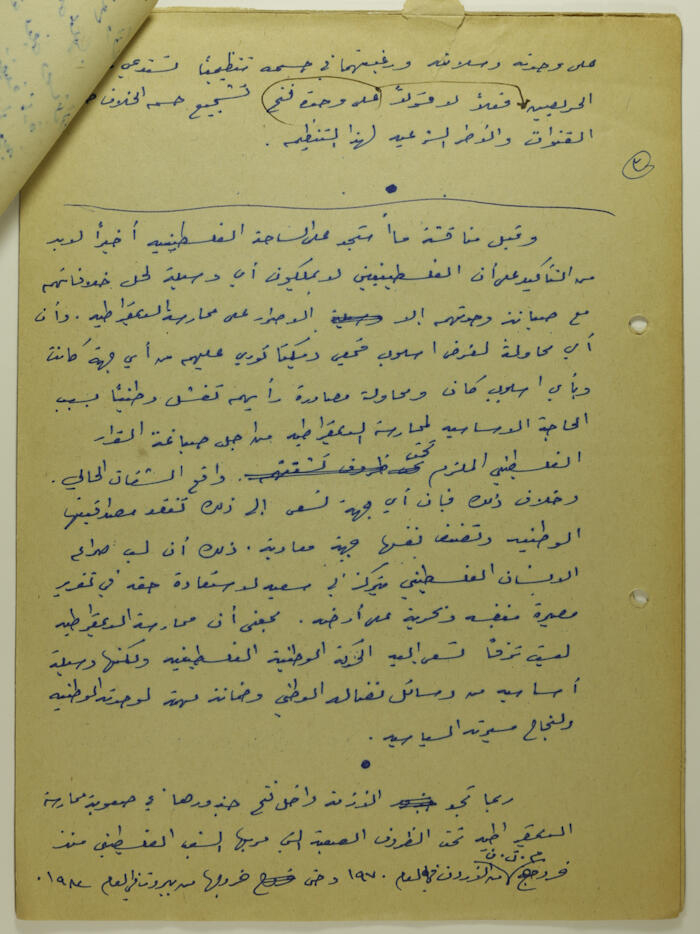 على وحدته وسلامته ورغبتهما في حسمه تنظيمياً تستدعي
الحريصين فعلاً لا قولاً على وحدة فتح تشجيع حسم الخلاف
القنوات والأطر الشرعية لهذا التنظيم.
٢
وقبل مناقشة ما استجد على الساحة الفلسطينية أخيراً لابد
من التأكيد على أن الفلسطينيين لا يملكون أي وسيلة لحل خلافاتهم
مع صيانة وحدتهم إلا الاصرار على ممارسة الديمقراطية. وأن
أي محاولة لفرض اسلوب قمعي دكيتاتوري عليهم من أي جهة كانت
وبأي اسلوب كان ومحاولة مصادرة رأيهم تفشل وطنياً بسبب
الحاجة الاساسية لممارسة الديمقراطية من اجل صياغة القرار
الفلسطيني الملزم تحت واقع الشتات الحالي.
وخلاف ذلك فإن أي جهة تسعى إلى ذلك تفقد مصداقيتها
الوطنية وتصنف نفسها جهة معادية. ذلك أن لب صراع
الانسان الفلسطيني يتركز في سعيه لاستعادة حقه في تقرير
مصيره بنفسه وبحرية على أرضه. بمعنى أن ممارسة الديمقراطية
ليست ترفاً تسعى اليه الحركة الوطنية الفلسطينية ولكنها وسيلة
أساسية من وسائل نضاله الوطني وضمانة مهمة لوحدته الوطنية
ولنجاح مسيرته السياسية.
ربما تجد الأزمة داخل فتح جذورها في صعوبة ممارسة
الديمقراطية تحت الظروف الصعبة التي مر بها الشعب الفلسطيني منذ
خروج م.ت.ف من الأردن في العام ١٩٧٠ وحتى خروجها من بيروت في العام ١٩٨٢.